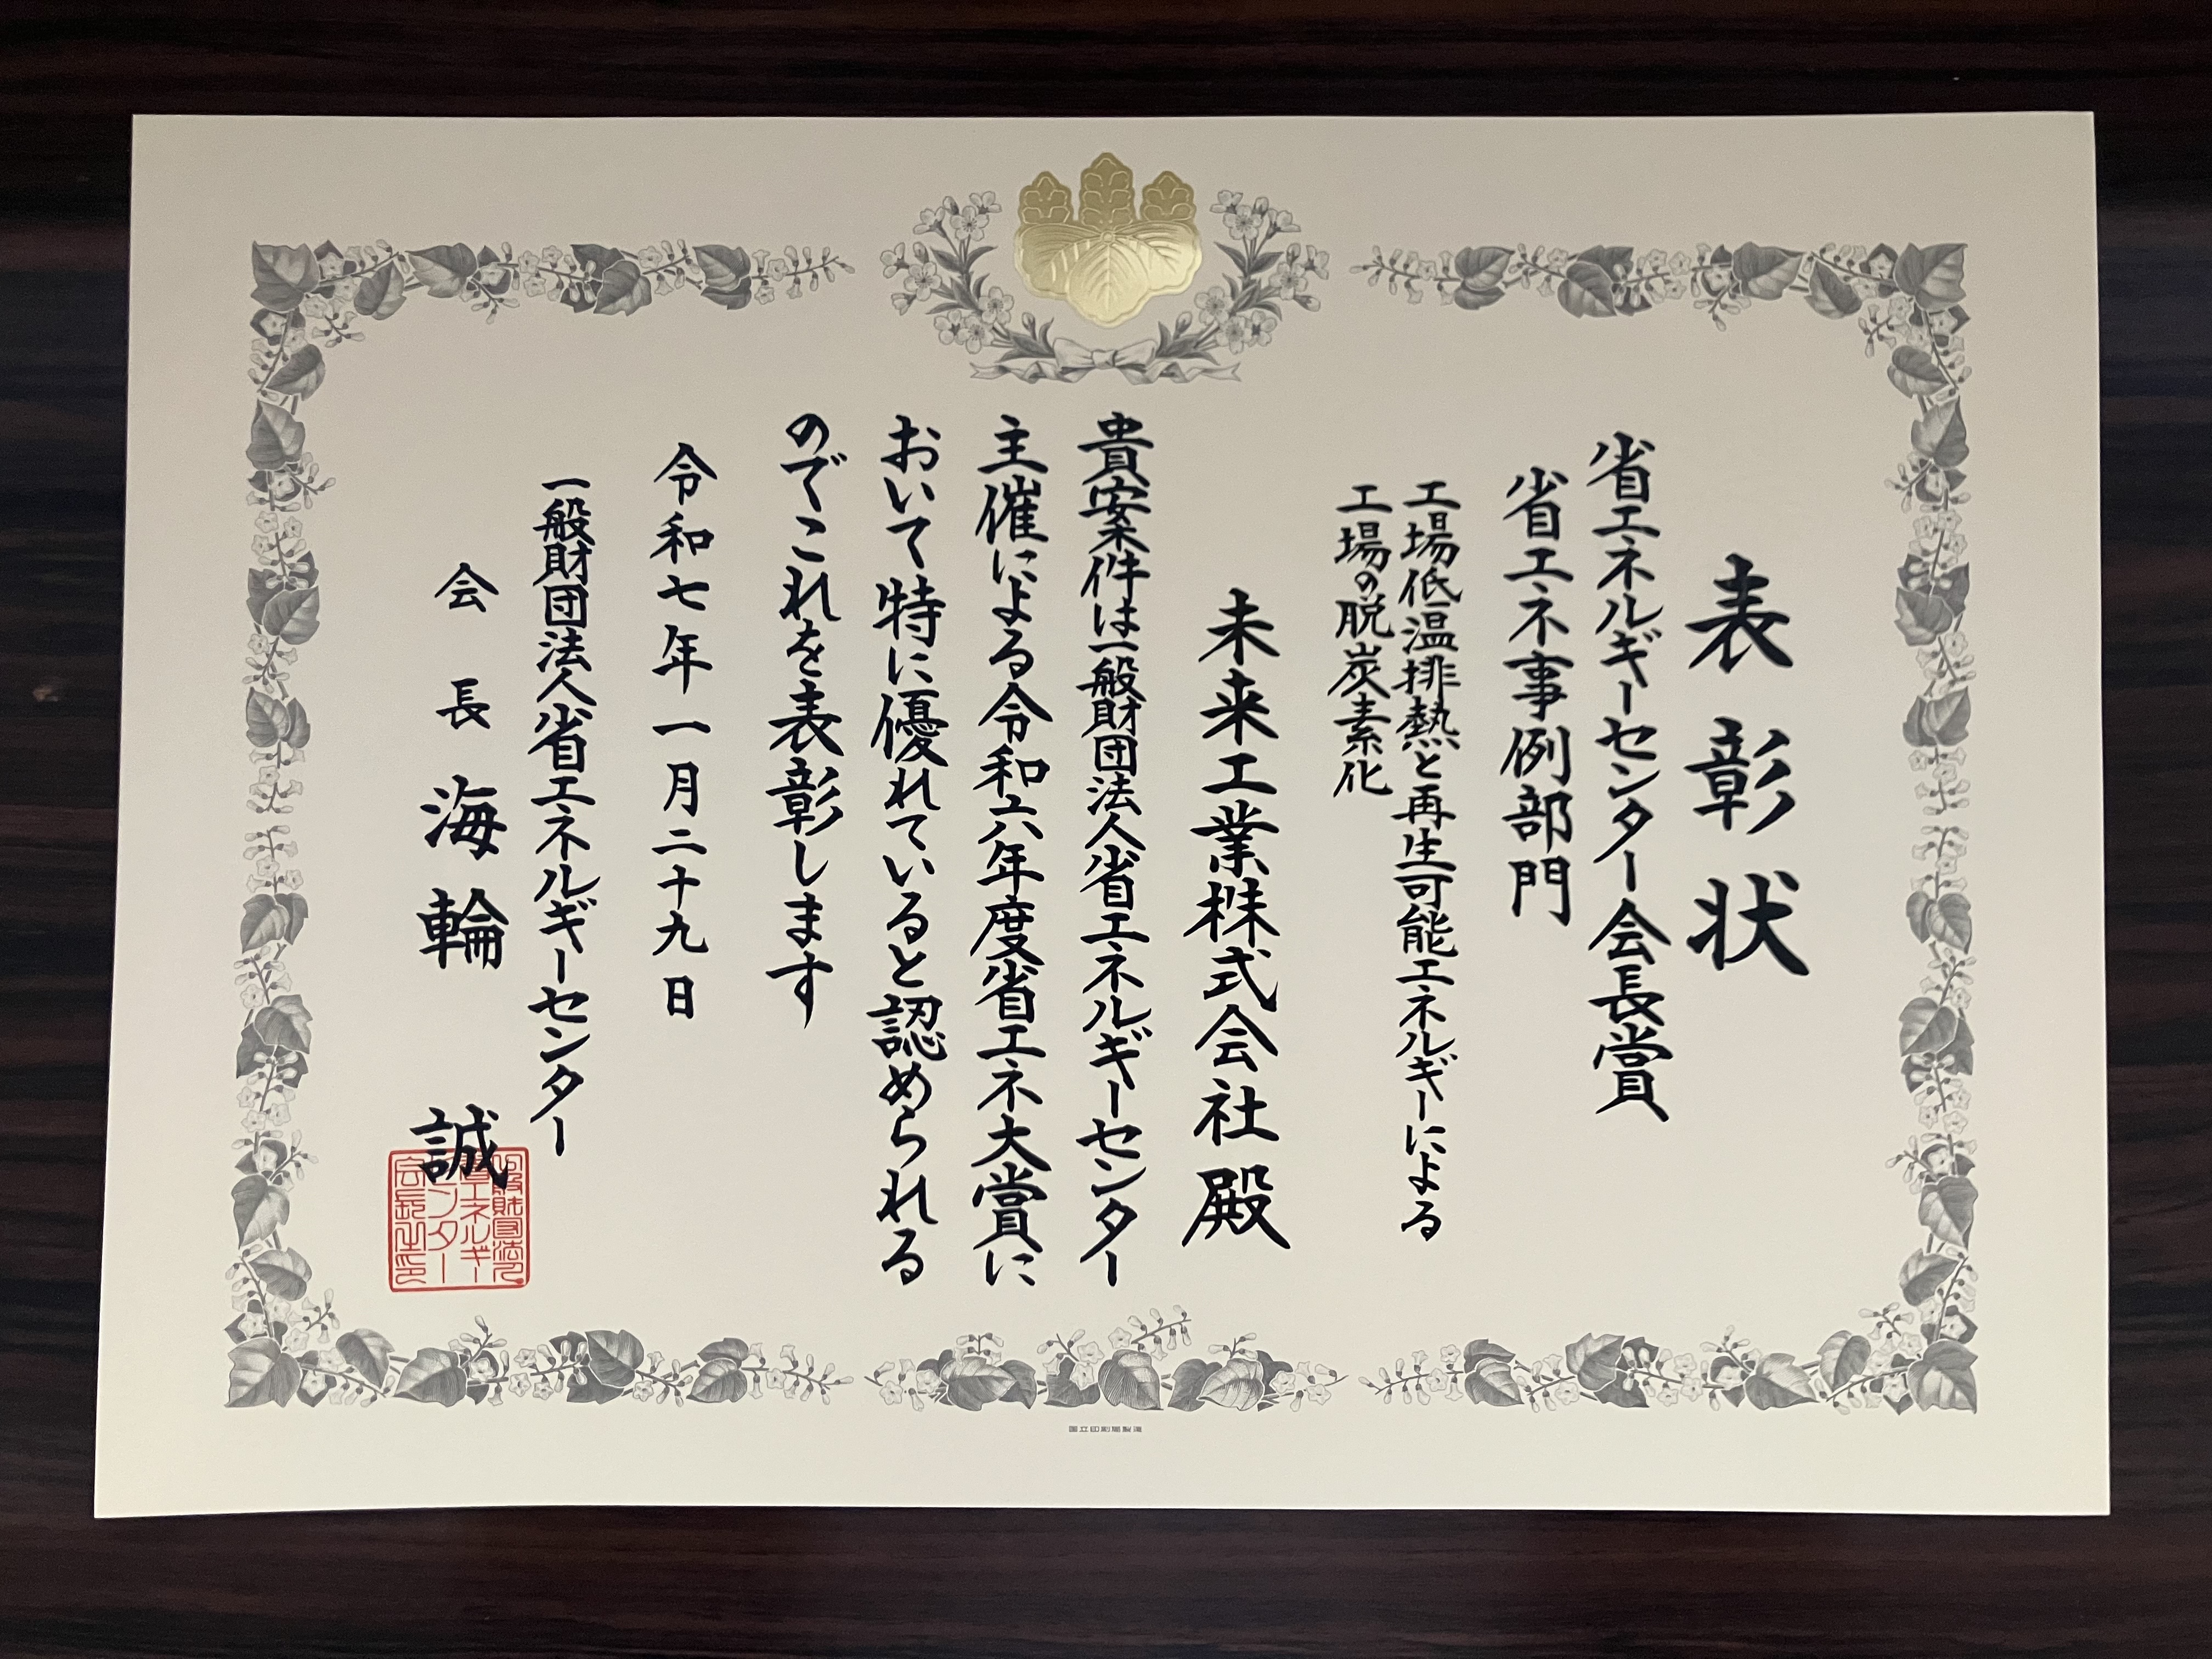 表彰状
省エネルギーセンター会長賞
省エネ事例部門
工場低温排熱と再生可能エネルギーによる
工場の脱炭素化
未来工業株式会社殿
貴案件は一般財団法人省エネルギーセンター
主催による令和六年度省エネ大賞に
おいて特に優れていると認められる
のでこれを表彰します
令和七年一月二十九日
一般財団法人省エネルギーセンター
会長 海輪 誠
一般財団法人
省エネルギー
センター
会長之印
国立印刷局製造